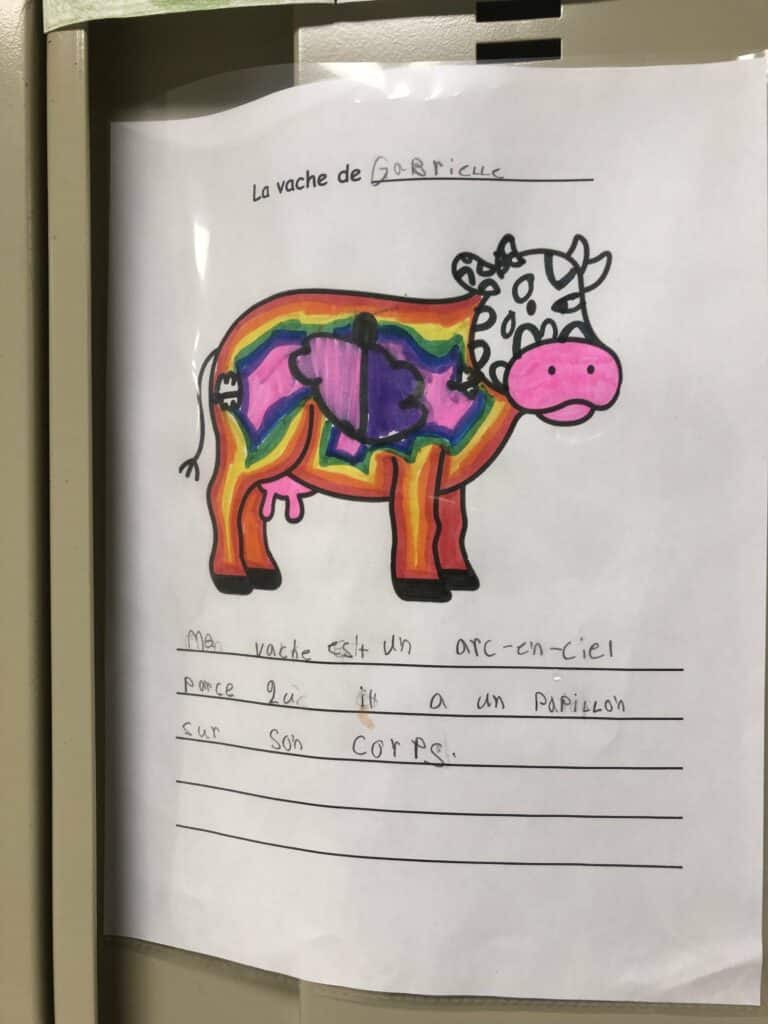 La vache de GaBrielle
Mon vache est un arc-en-ciel
parce que il a un PaPiLLon
sur son corps.